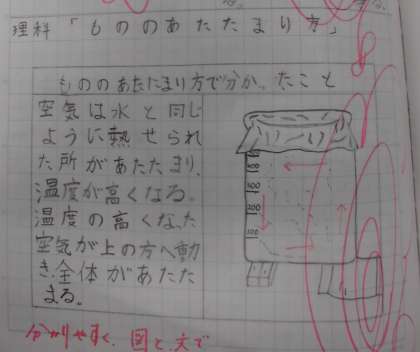 理科「もののあたたまり方」
もののあたたまり方で分か。たこと
空気は水と同じ
ように熱せられ
た所があたたまり、
温度が高くなる。
温度の高くなった
空気が上の方へ動
き、全体があたた
まる。
分かりやすく、図と文で